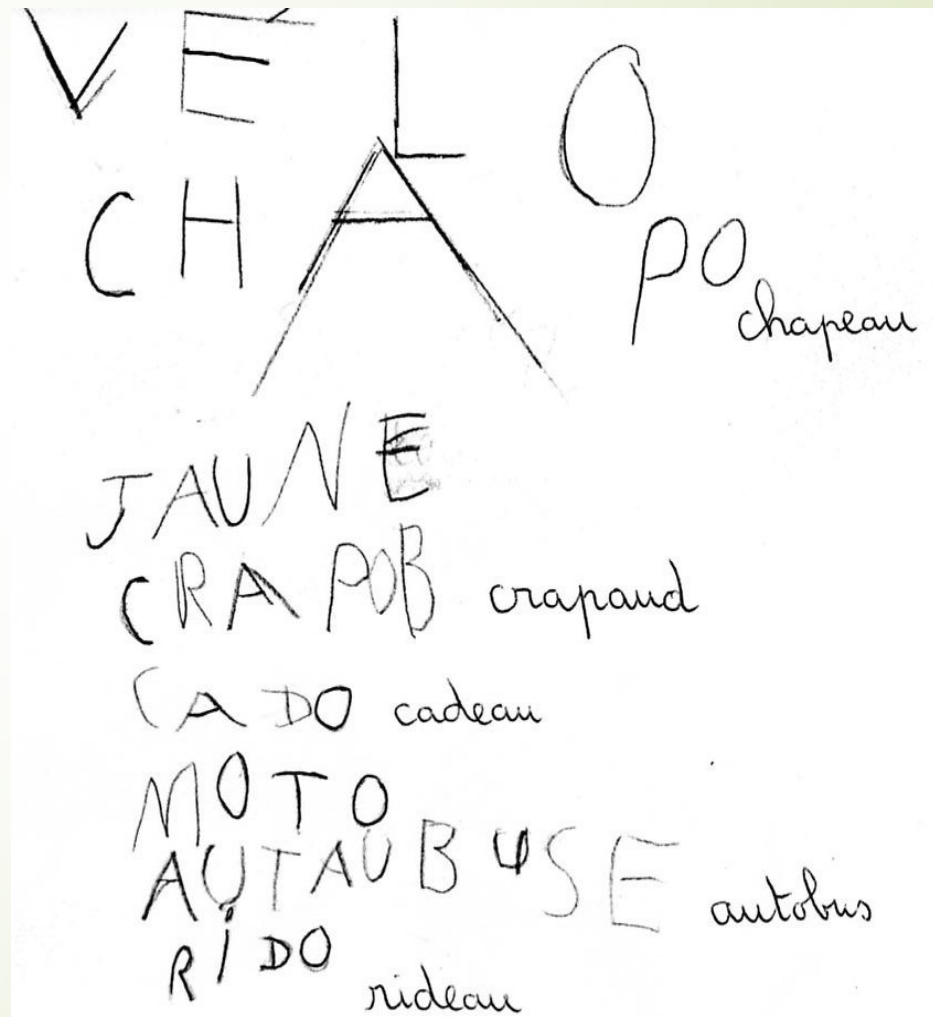 VÉLO
CHAPO chapeau
JAUNE
CRAPOB crapaud
CADO cadeau
MOTO
AUTAUBUSE autobus
RIDO rideau